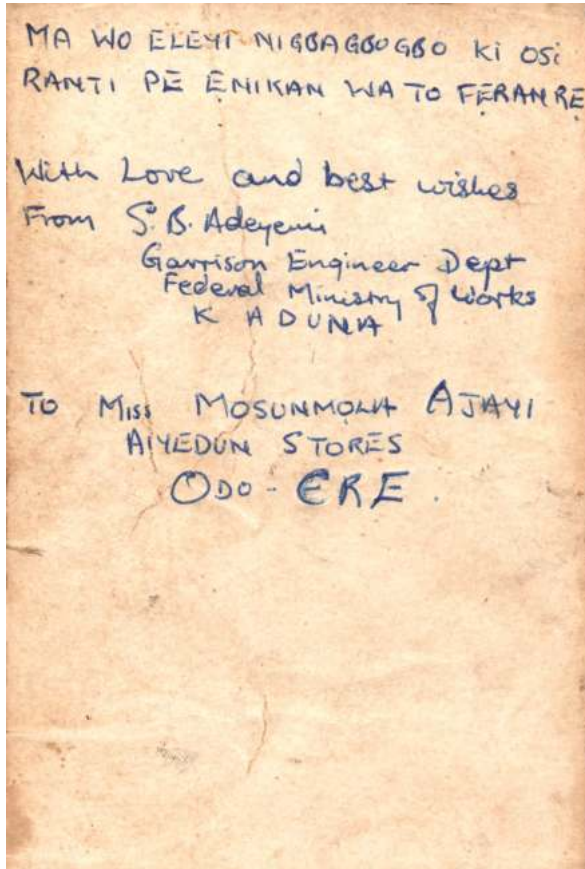 MA WO ELEYI NIGBAGBOGBO KI OSI
RANTI PE ẸNIKAN WA TO FẸRAN RẸ
With Love and best wishes
From S. B. Adeyemi
Garrison Engineer Dept
Federal Ministry of Works
KADUNA
TO Miss MOSUNMOLA AJAYI
AIYEDUN STORES
ODO-ERE.